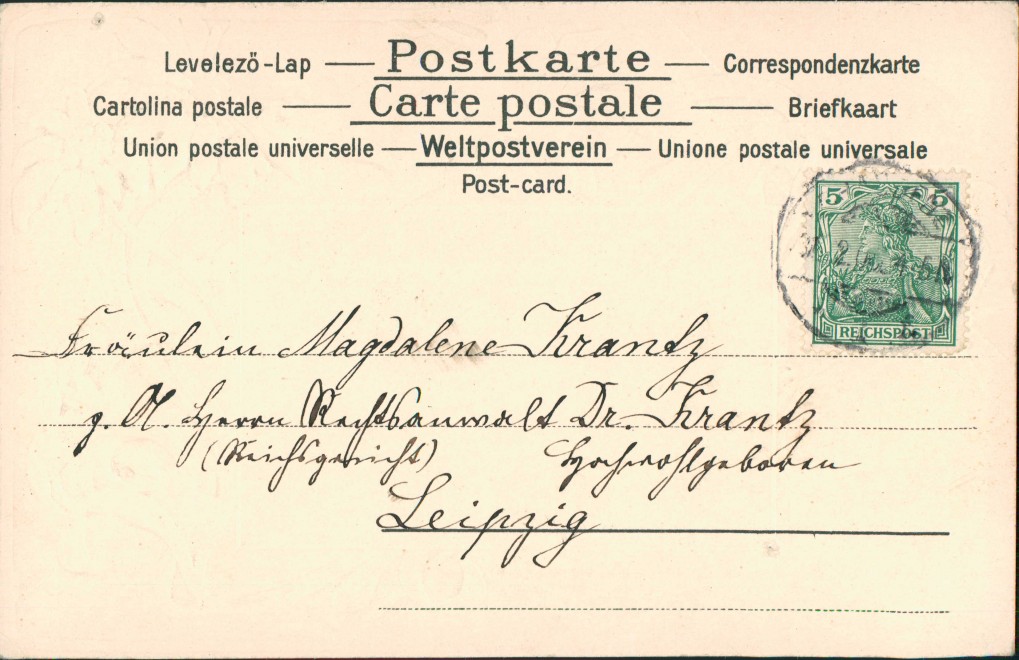 Levelező-Lap — Postkarte — Correspondenzkarte
Cartolina postale — Carte postale — Briefkaart
Union postale universelle — Weltpostverein — Unione postale universale
Post-card.
5 5
REICHSPOST
Fräulein Magdalene Krantz
Herrn Rechtsanwalt Dr. Krantz
(Reichsgericht) Hochwohlgeboren
Leipzig